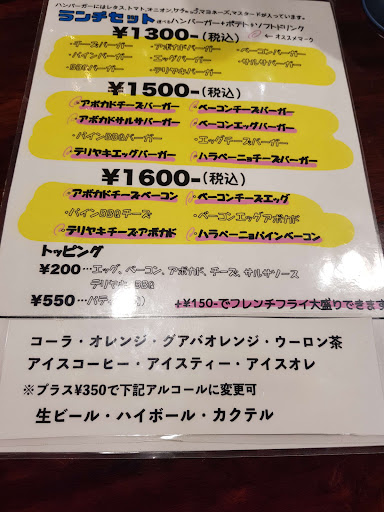 ハンバーガーにはレタス、トマト、オニオン、ケチャップ、マヨネーズ、マスタードが入っています。
ランチセット 選べるハンバーガー+ポテト+ソフトドリンク
¥1300-(税込) ←オススメマーク
・チーズバーガー ・アボカドバーガー ・ベーコンバーガー
・パインバーガー ・エッグバーガー ・サルサバーガー
・BBQバーガー ・テリヤキバーガー
¥1500-(税込)
アボカドチーズバーガー ベーコンチーズバーガー
アボカドサルサバーガー ベーコンエッグバーガー
・パインBBQバーガー ・エッグチーズバーガー
テリヤキエッグバーガー ハラペーニョチーズバーガー
¥1600-(税込)
アボカドチーズベーコン ベーコンチーズエッグ
・パインBBQチーズ ・ベーコンエッグアボカド
テリヤキチーズアボカド ハラペーニョパインベーコン
トッピング
¥200…エッグ、ベーコン、アボカド、チーズ、サルサソース
テリヤキ、BBQ
¥550…パティ
+¥150-でフレンチフライ大盛りできます
コーラ・オレンジ・グアバオレンジ・ウーロン茶
アイスコーヒー・アイスティー・アイスオレ
※プラス¥350で下記アルコールに変更可
生ビール・ハイボール・カクテル